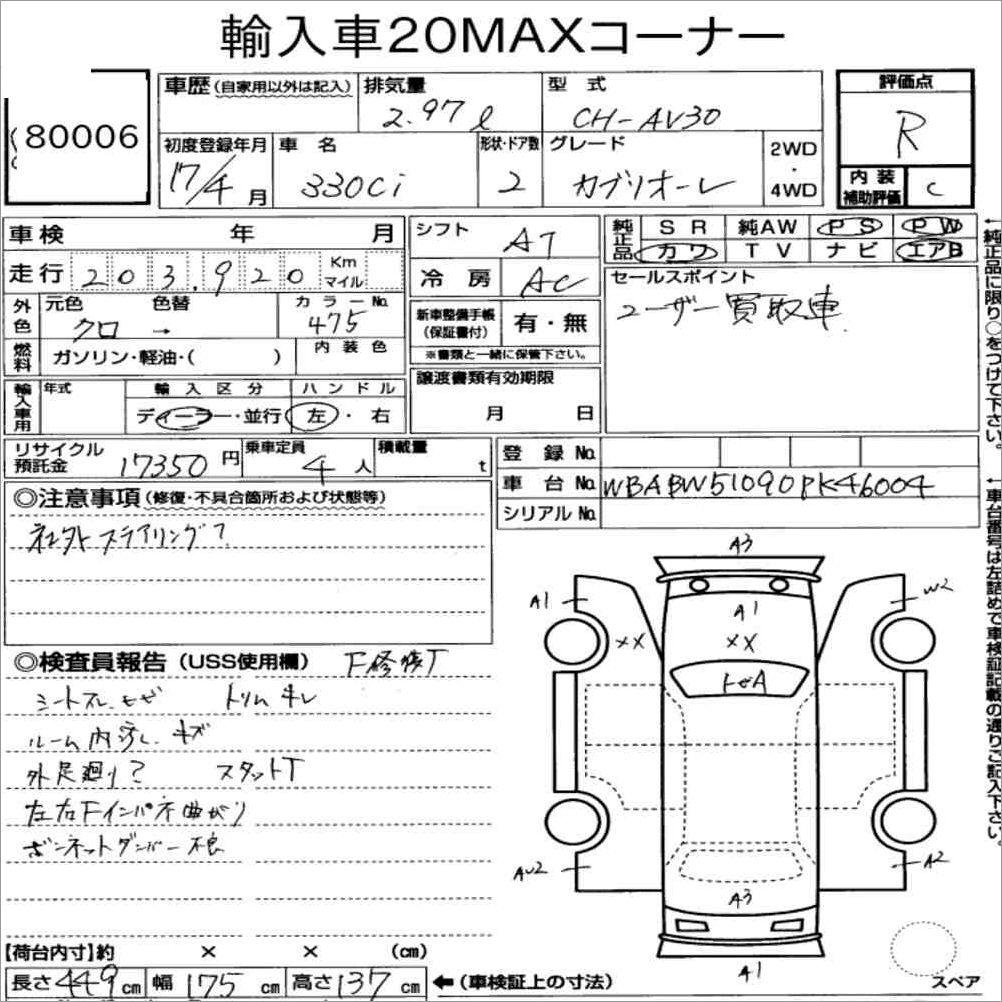 輸入車20MAXコーナー
80006
車歴(自家用以外は記入) 排気量 2.97ℓ 型式 CH-AV30 評価点 R
初度登録年月 17/4月 車名 330Ci 形状・ドア数 2 グレード カブリオーレ 2WD・4WD 内装補助評価 C
車検 年 月
シフト AT
純正品 SR 純AW PS PW
カワ TV ナビ エアB
走行 203,920 Km マイル
冷房 AC
セールスポイント
ユーザー買取車
外色 元色 クロ → 色替 カラーNo. 475
新車整備手帳(保証書付) 有・無
※書類と一緒に保管下さい。
燃料 ガソリン・軽油・( ) 内装色
譲渡書類有効期限
月 日
輸入車用 年式 輸入区分 ハンドル
ディーラー・並行 左・右
リサイクル預託金 17350円 乗車定員 4人 積載量 t
登録No.
車台No. WBABW51090PK46004
シリアルNo.
←純正品に限り○をつけて下さい。
←車台番号は左詰めで車検証記載の通りご記入下さい。
◎注意事項(修復・不具合箇所および状態等)
社外ステアリング?
◎検査員報告(USS使用欄) F修繕T
シートスレ、セゼ トリムキレ
ルーム内汚レ、キズ
外足廻り? スタットT
左右Fインパネ曲がり
ボンネットダンパー不良
A3
A1 A1 W2
×× ××
トセA
AW2 A3 A2
A1
スペア
【荷台内寸】約 × × (cm)
長さ 449cm 幅 175cm 高さ 137cm ←(車検証上の寸法)